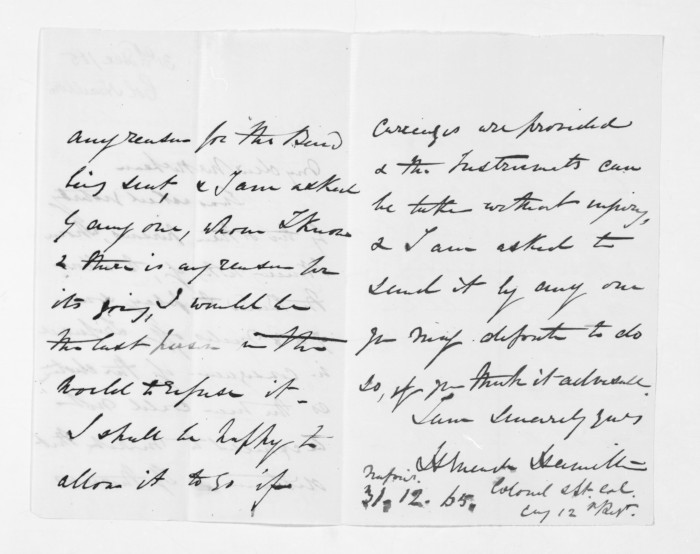 any reason for the Band
being sent, & I am asked
by any one, whom I know
& there is any reason for
its going, I would be
the last person in the
world to refuse it -
I shall be happy to
allow it to go if
Carriages are provided
& the Instruments can
be taken without injury,
& I am asked to
send it by any one
you may depute to do
so, if you think it advisable.
I am Sincerely yours
Hamilton
Napier.
31.12.65.
Colonel
Comg 12th Regt.